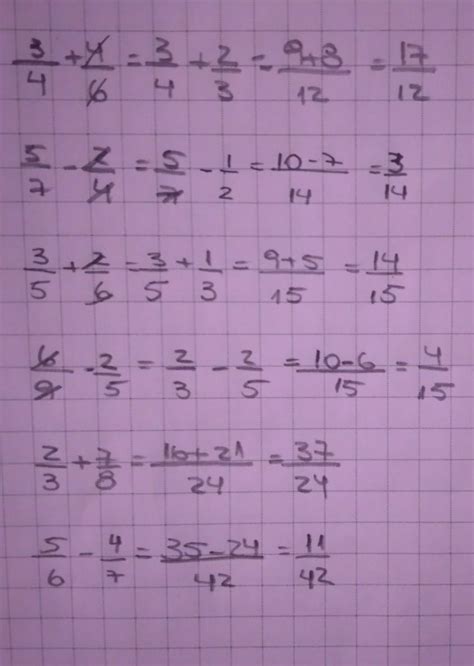 3/4 + 4/6 = 3/4 + 2/3 = 9+8/12 = 17/12
5/7 - 2/4 = 5/7 - 1/2 = 10-7/14 = 3/14
3/5 + 2/6 = 3/5 + 1/3 = 9+5/15 = 14/15
6/9 - 2/5 = 2/3 - 2/5 = 10-6/15 = 4/15
2/3 + 7/8 = 16+21/24 = 37/24
5/6 - 4/7 = 35-24/42 = 11/42